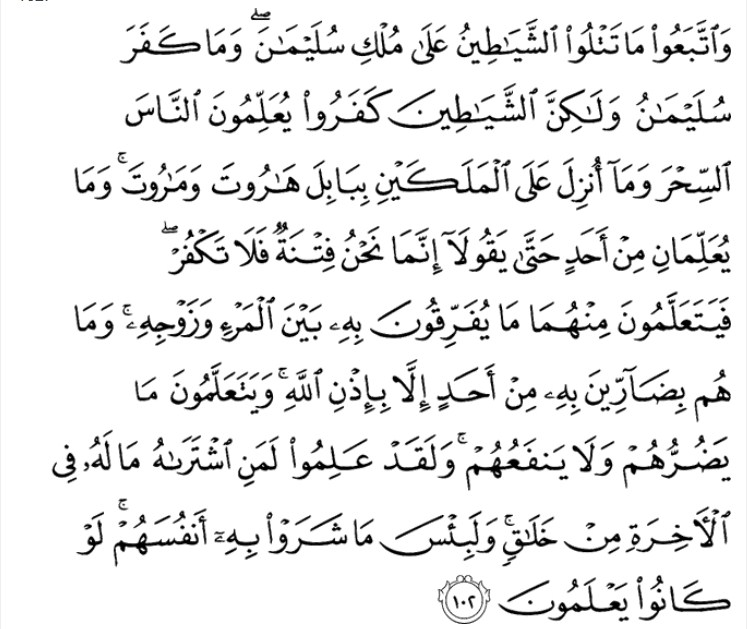 وَٱتَّبَعُوا۟ مَا تَتْلُوا۟ ٱلشَّيَـٰطِينُ عَلَىٰ مُلْكِ سُلَيْمَـٰنَ ۖ وَمَا كَفَرَ
سُلَيْمَـٰنُ وَلَـٰكِنَّ ٱلشَّيَـٰطِينَ كَفَرُوا۟ يُعَلِّمُونَ ٱلنَّاسَ
ٱلسِّحْرَ وَمَآ أُنزِلَ عَلَى ٱلْمَلَكَيْنِ بِبَابِلَ هَـٰرُوتَ وَمَـٰرُوتَ ۚ وَمَا
يُعَلِّمَانِ مِنْ أَحَدٍ حَتَّىٰ يَقُولَآ إِنَّمَا نَحْنُ فِتْنَةٌ فَلَا تَكْفُرْ ۖ
فَيَتَعَلَّمُونَ مِنْهُمَا مَا يُفَرِّقُونَ بِهِۦ بَيْنَ ٱلْمَرْءِ وَزَوْجِهِۦ ۚ وَمَا
هُم بِضَآرِّينَ بِهِۦ مِنْ أَحَدٍ إِلَّا بِإِذْنِ ٱللَّهِ ۚ وَيَتَعَلَّمُونَ مَا
يَضُرُّهُمْ وَلَا يَنفَعُهُمْ ۚ وَلَقَدْ عَلِمُوا۟ لَمَنِ ٱشْتَرَىٰهُ مَا لَهُۥ فِى
ٱلْـَٔاخِرَةِ مِنْ خَلَـٰقٍ ۚ وَلَبِئْسَ مَا شَرَوْا۟ بِهِۦٓ أَنفُسَهُمْ ۚ لَوْ
كَانُوا۟ يَعْلَمُونَ ١٠٢